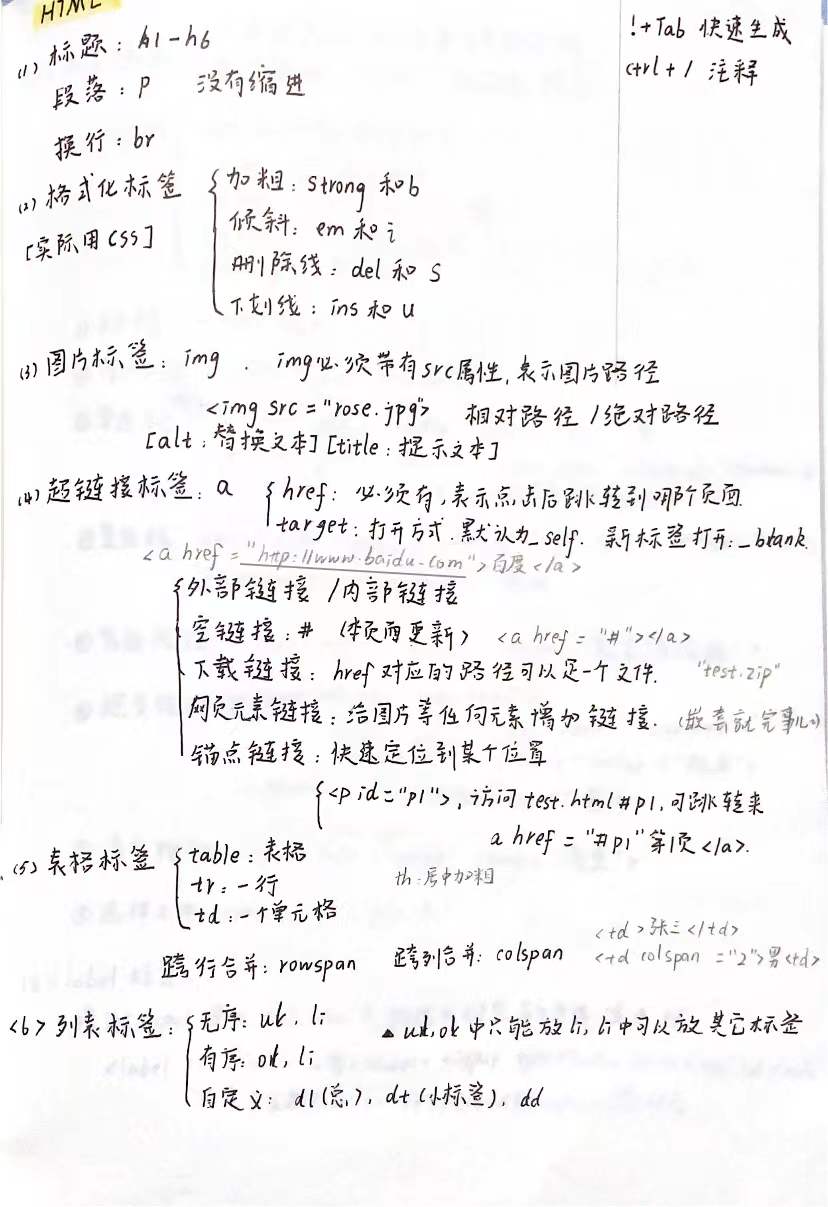 HTML
!+Tab 快速生成
ctrl + / 注释
(1) 标题：h1-h6
段落：p 没有缩进
换行：br
(2) 格式化标签
[实际用CSS]
加粗：strong 和 b
倾斜：em 和 i
删除线：del 和 s
下划线：ins 和 u
(3) 图片标签：img . img必须带有src属性,表示图片路径
<img src="rose.jpg"> 相对路径 / 绝对路径
[alt：替换文本] [title：提示文本]
(4) 超链接标签：a
href：必须有,表示点击后跳转到哪个页面.
target：打开方式.默认为_self. 新标签打开：_blank.
<a href="http://www.baidu.com">百度</a>
外部链接 / 内部链接
空链接：# (本页面更新) <a href="#"></a>
下载链接：href对应的路径可以是一个文件. "test.zip"
网页元素链接：给图片等任何元素增加链接. (嵌套就完事儿)
锚点链接：快速定位到某个位置
<p id="p1">,访问test.html#p1,可跳转来
a href="#p1"第1页</a>.
(5) 表格标签
table：表格
tr：一行
td：一个单元格
th：居中加粗
跨行合并：rowspan 跨列合并：colspan
<td>张三</td>
<td colspan="2">男<td>
<6> 列表标签：
无序：ul, li
有序：ol, li
自定义：dl(总), dt(小标签), dd
▲ ul,ol中只能放li, li中可以放其它标签